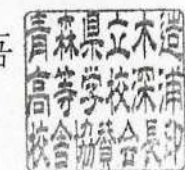 青森県立木造
高等学校深浦
校舎協賛会長印